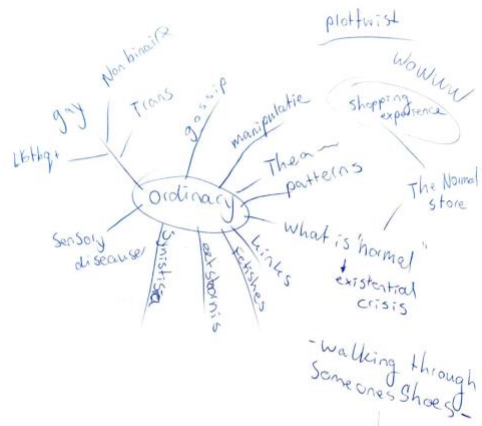 plottwist
wowww
shopping
experience
The Normal
store
Nonbinaire
gay
Trans
gossip
manipulatie
LGBTQ+
Thea
patterns
Ordinary
what is "normal"
existential
crisis
Sensory
eetstoornis
fetishes
kinks
- walking through
Someones Shoes -